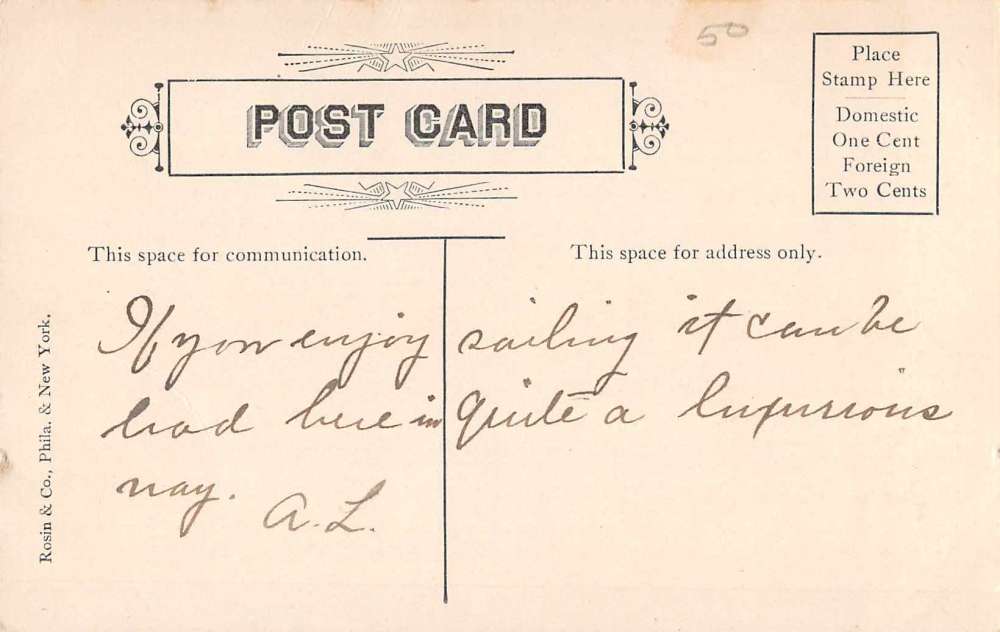 50
POST CARD
Place
Stamp Here
Domestic
One Cent
Foreign
Two Cents
This space for communication.
This space for address only.
If you enjoy sailing it can be
had here in quite a luxurious
way. A. L.
Rosin & Co., Phila. & New York.